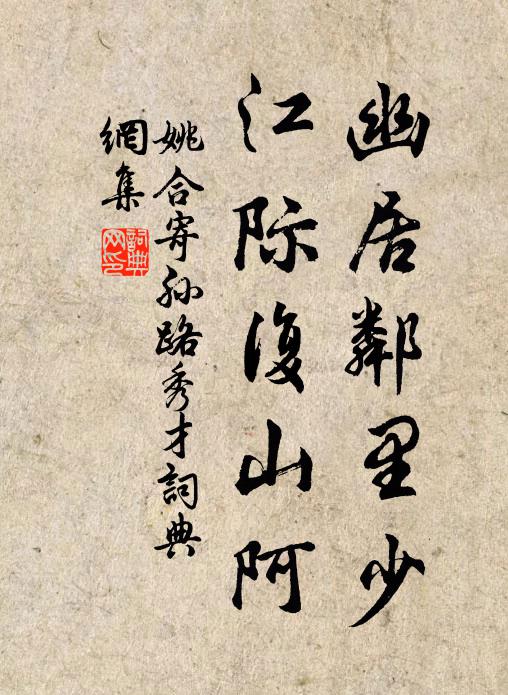 幽居鄰里少
江际復山阿
姚合寄孙路秀才詞典
網集
詞典
网印